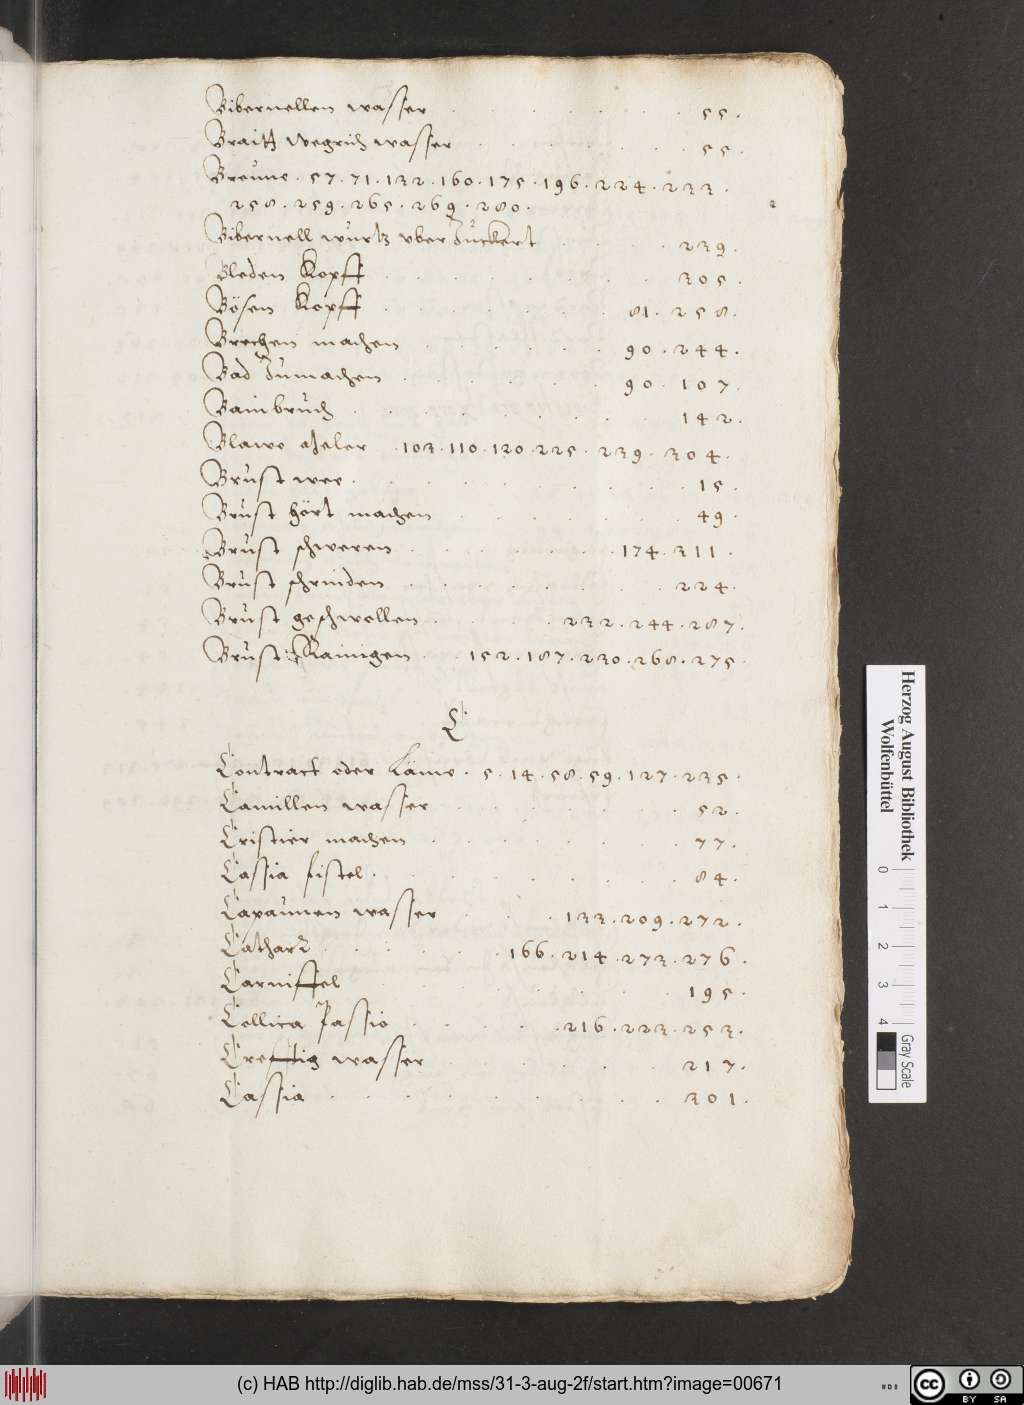 Bibernellen wasser . . . . . . 55.
Braitt Wegrich wasser . . . . . 55.
Breune . 57 . 71 . 132 . 160 . 175 . 196 . 224 . 233 .
258 . 259 . 265 . 269 . 280 .
Bibernell wurtz vber Zuckert . . . . . 239 .
Bleden Kopff . . . . . . 305 .
Bösen Kopff . . . . . 81 . 258 .
Brechen machen . . . . . 90 . 244 .
Bad Zumachen . . . . . 90 . 107 .
Bainbruch . . . . . . 142 .
Blawe . 103 . 110 . 120 . 225 . 239 . 304 .
Brust wee . . . . . . 15 .
Brust hört machen . . . . . . 49 .
Brust schweren . . . . . . 174 . 311 .
Brust schrinden . . . . . . 224 .
Brust geschwollen . . . . 232 . 244 . 287 .
Brust Rainigen . . 152 . 187 . 230 . 268 . 275 .
C
Contract oder Läme . 5 . 14 . 58 . 59 . 127 . 235 .
Camillen wasser . . . . . . 52 .
Cristier machen . . . . . . 77 .
Cassia fistel . . . . . . 84 .
Capaunen wasser . . . 133 . 209 . 272 .
Catharr . . . . 166 . 214 . 273 . 276 .
Carniffel . . . . . . 195 .
Collica Passio . . . . 216 . 223 . 253 .
wasser . . . . . 217 .
Cassia . . . . . . 301 .
Herzog August Bibliothek
Wolfenbüttel
0 1 2 3 4
Gray Scale
(c) HAB http://diglib.hab.de/mss/31-3-aug-2f/start.htm?image=00671
cc BY SA